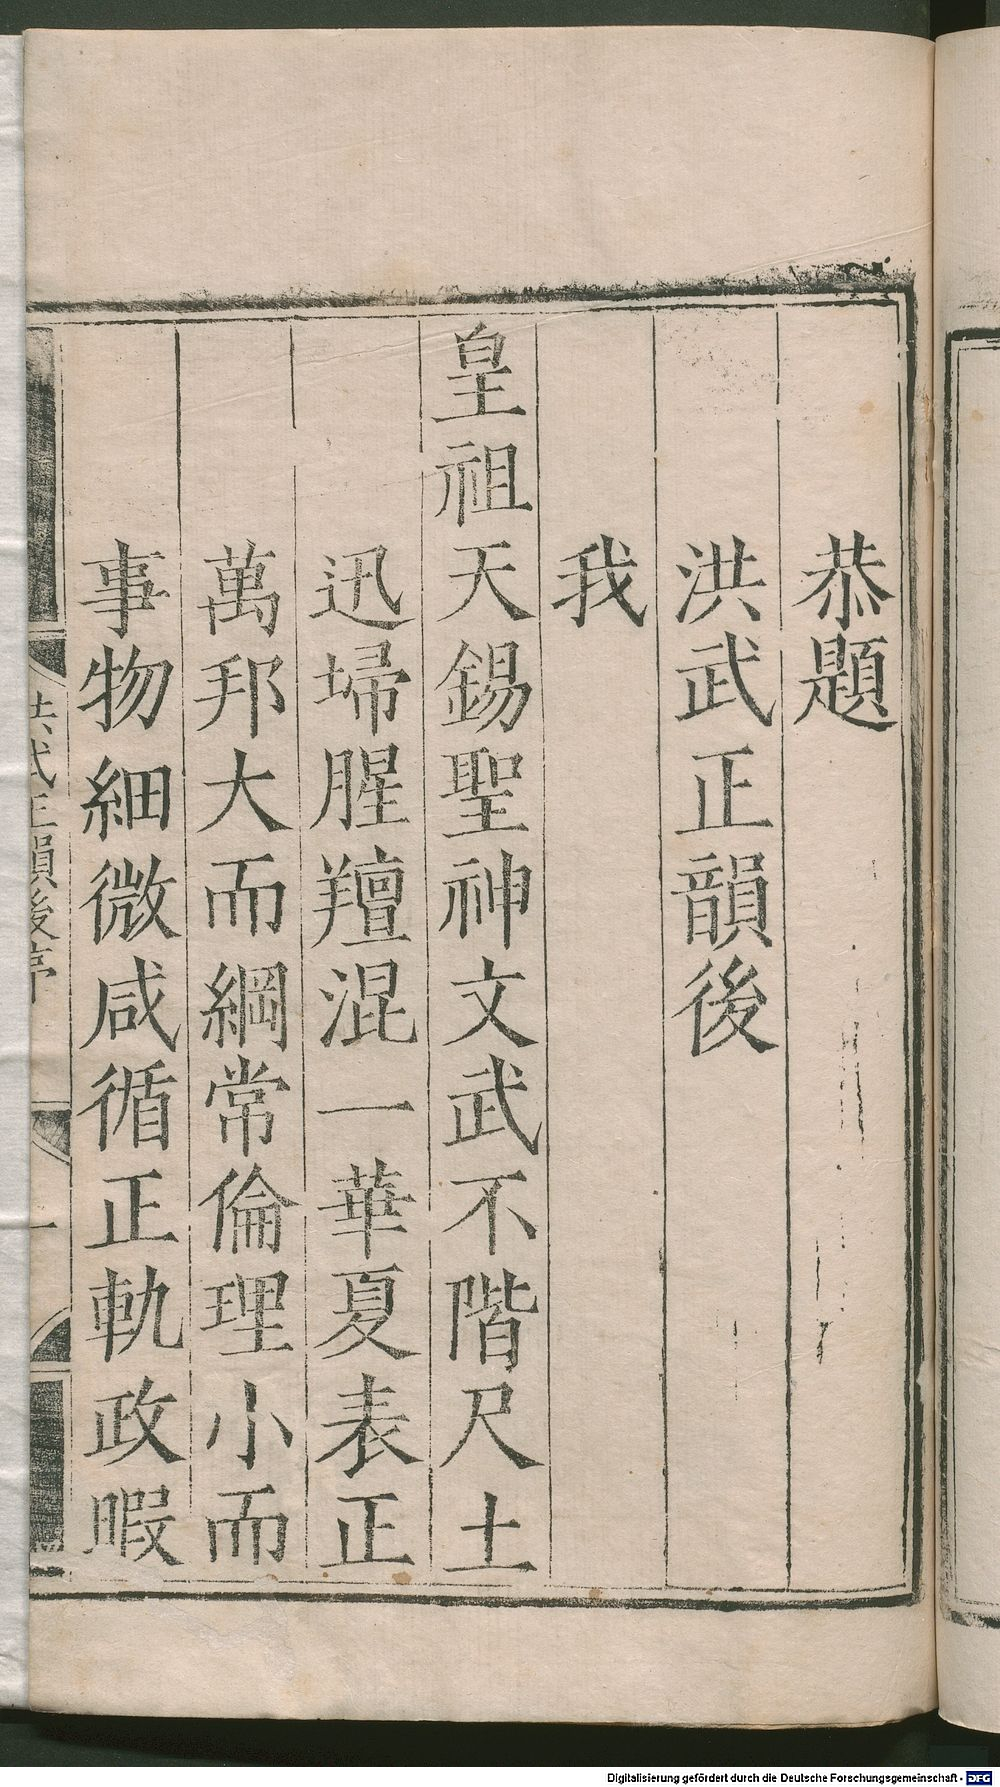 恭題
洪武正韻後
我
皇祖天錫聖神文武不階尺土
迅埽腥羶混一華夏表正
萬邦大而綱常倫理小而
事物細微咸循正軌政暇
洪武正韻後序
一
Digitalisierung gefördert durch die Deutsche Forschungsgemeinschaft - DFG